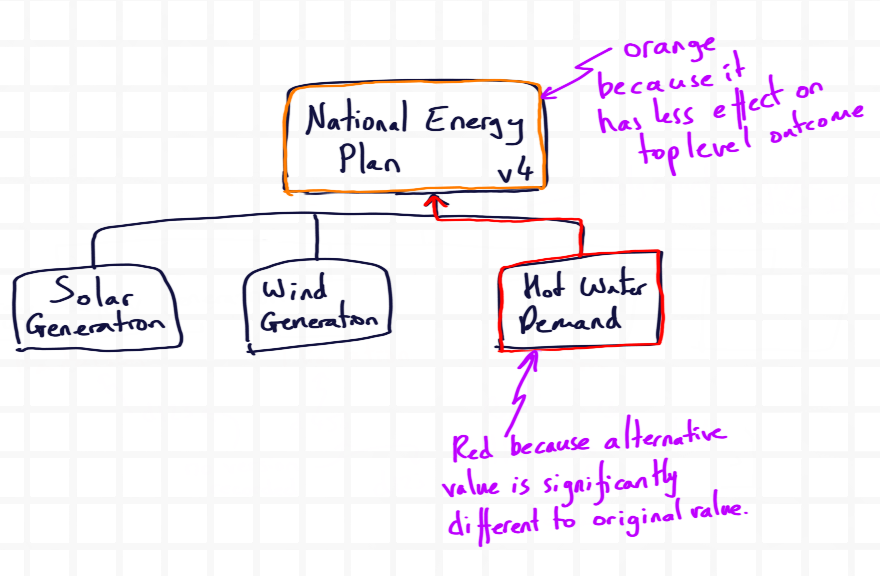 orange
because it
has less effect on
top level outcome
National Energy
Plan
v4
Solar
Generation
Wind
Generation
Hot Water
Demand
Red because alternative
value is significantly
different to original value.